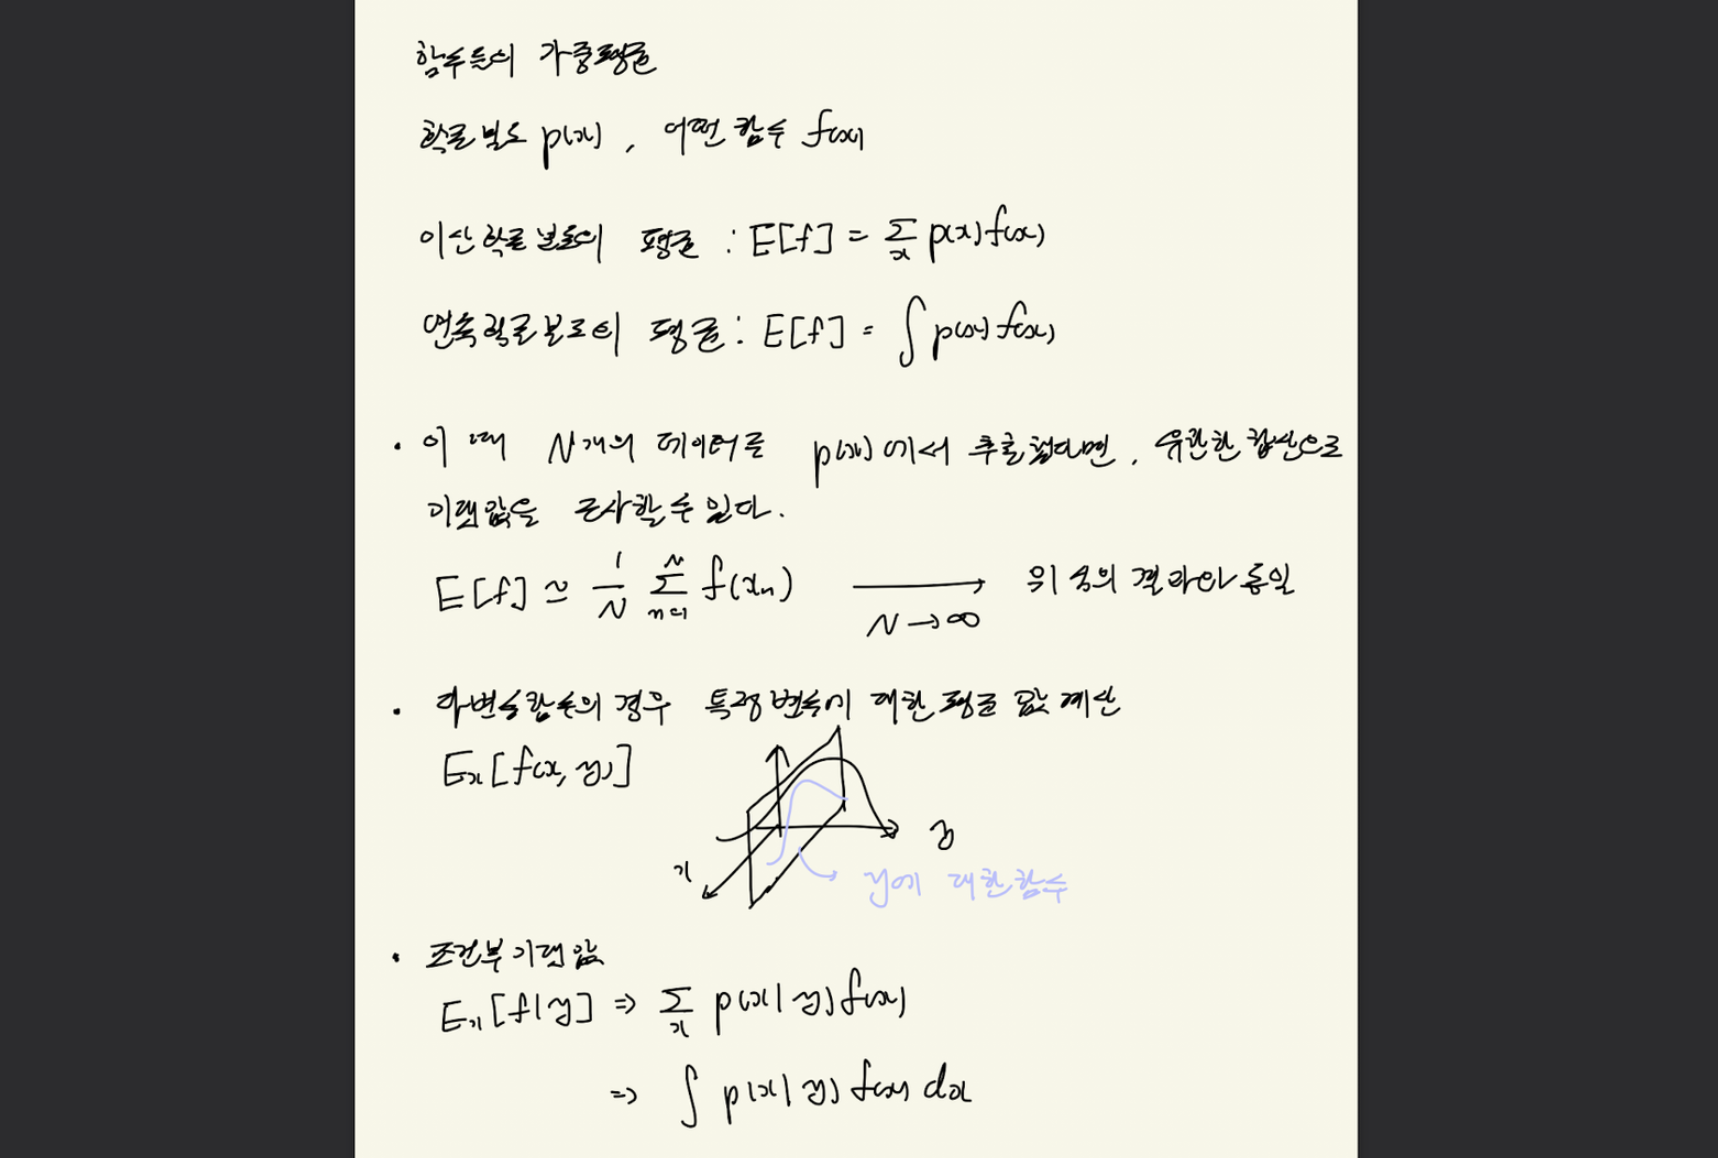 함수들의 가중평균
확률밀도 p(x), 어떤 함수 f(x)
이산확률 분포의 평균 : E[f] = Σ_x p(x)f(x)
연속확률분포의 평균 : E[f] = ∫p(x)f(x)
· 이 때 N개의 데이터를 p(x)에서 추출했다면, 유한한 합산으로
기댓값을 근사할 수 있다.
E[f] ≃ 1/N Σ_{n=1}^{N} f(xₙ) → N→∞ 위 식의 결과와 동일
· 다변수함수의 경우 특정변수에 대한 평균 값 계산
Eₓ[f(x,y)]
x
y에 대한함수
· 조건부 기댓값
Eₓ[f|y] ⇒ Σ_x p(x|y)f(x)
⇒ ∫p(x|y)f(x)dx